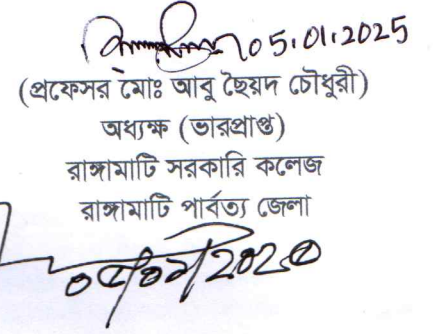 05.01.2025
(প্রফেসর মোঃ আবু ছৈয়দ চৌধুরী)
অধ্যক্ষ (ভারপ্রাপ্ত)
রাঙ্গামাটি সরকারি কলেজ
রাঙ্গামাটি পার্বত্য জেলা